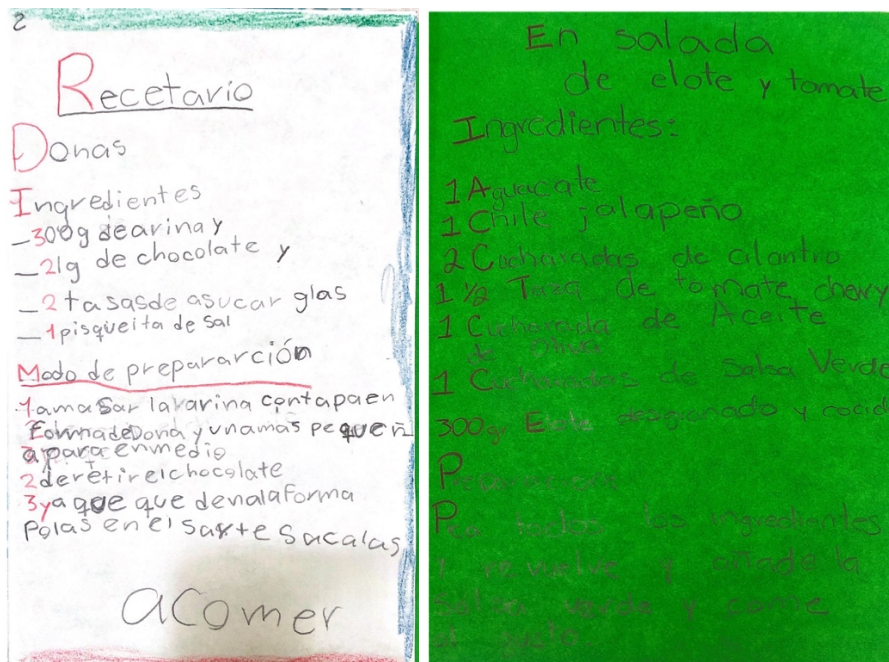 2
Recetario
Donas
Ingredientes
_300g dearina y
_21g de chocolate y
_2 tasasde asucar glas
_1 pisqueita de sal
Modo de prepararción
1 amasar lavarina contapaen
FormadeDona y unamás pequeñ
a para enmedio
2 deretirelchocolate
3 ya que que denalaforma
Polas en el Sarte Sacalas
acomer
En salada
de elote y tomate
Ingredientes:
1 Aguacate
1 Chile jalapeño
2 Cucharadas de cilantro
1 1/2 Taza de tomate chery
1 Cucharada de Aceite
de Oliva
1 Cucharadas de Salsa Verde
300gr Elote desgranado y cocid
Pica todos los ingredientes
y revuelve y añade la
Salsa verde y come